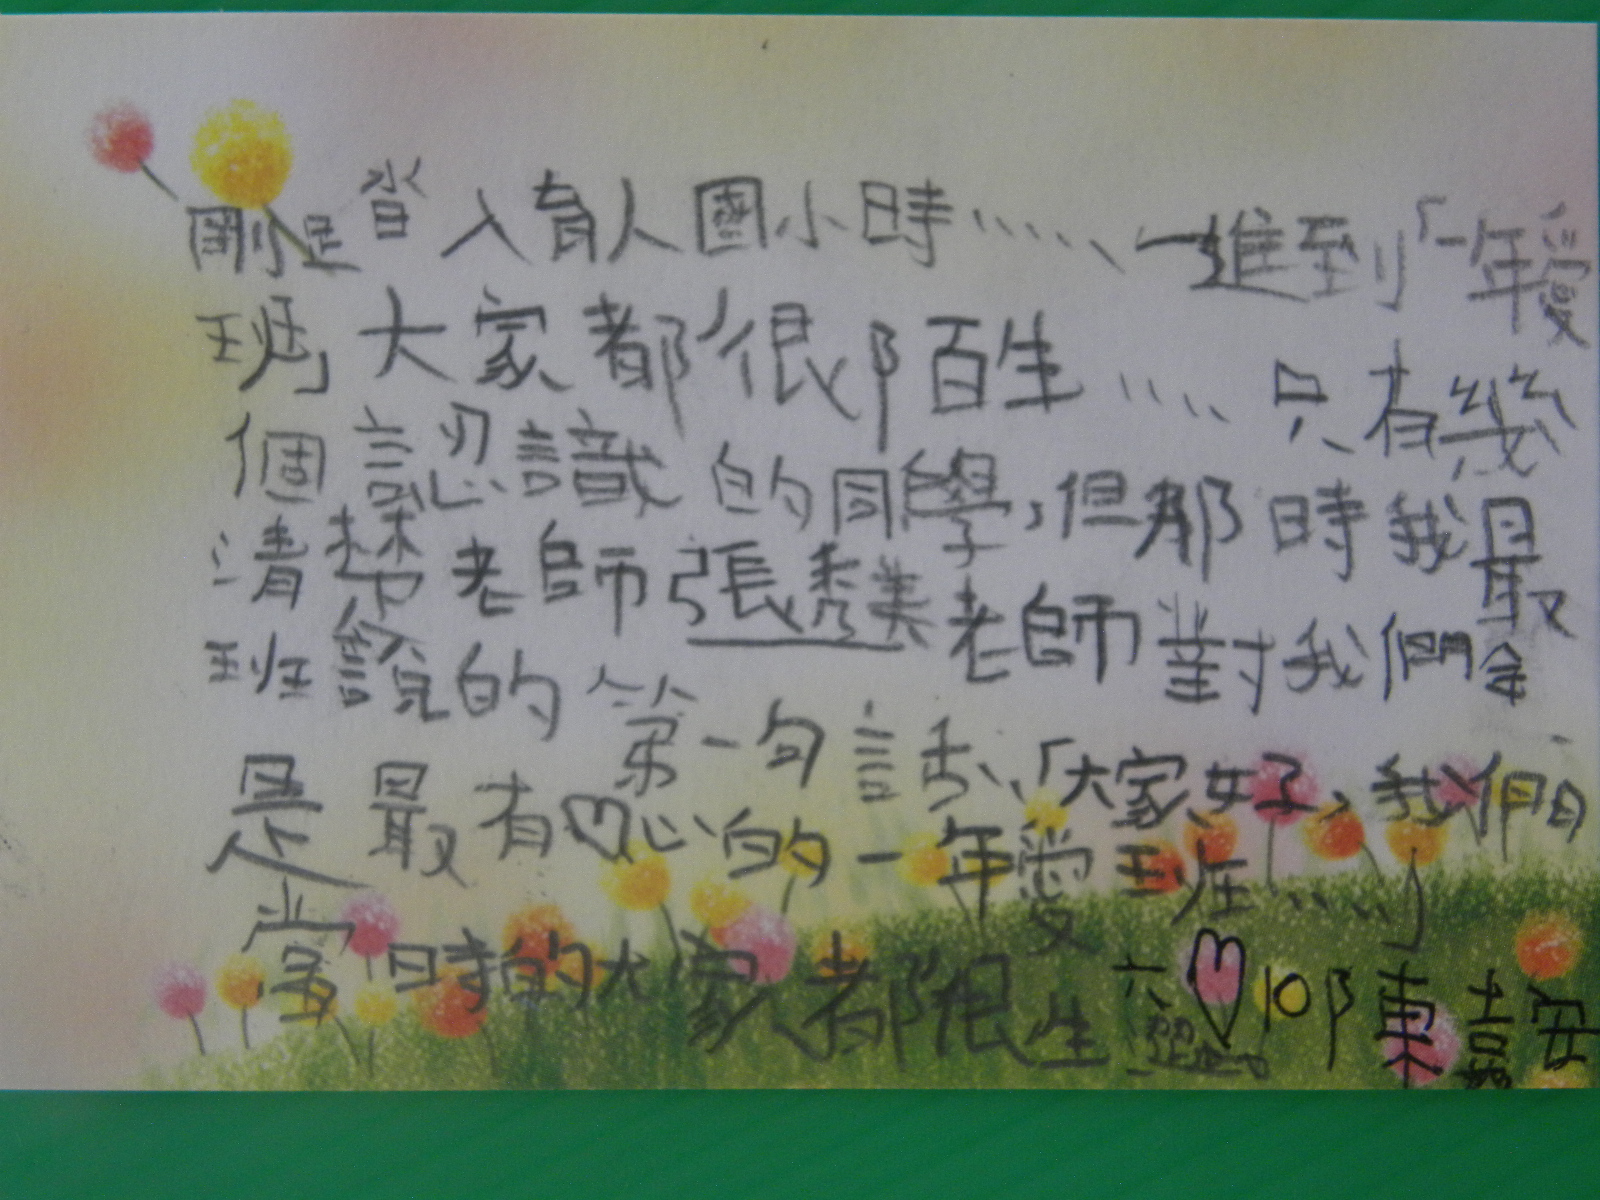 剛踏入育人國小時……一進到「一年愛
班」大家都很陌生……只有幾
個認識的同學,但那時我最
清楚老師張秀美老師對我們全
班說的第一句話、「大家好,我們
是最有♡心的一年愛班……」
當時的大家都很生
六 ♡ 10 陳嘉安